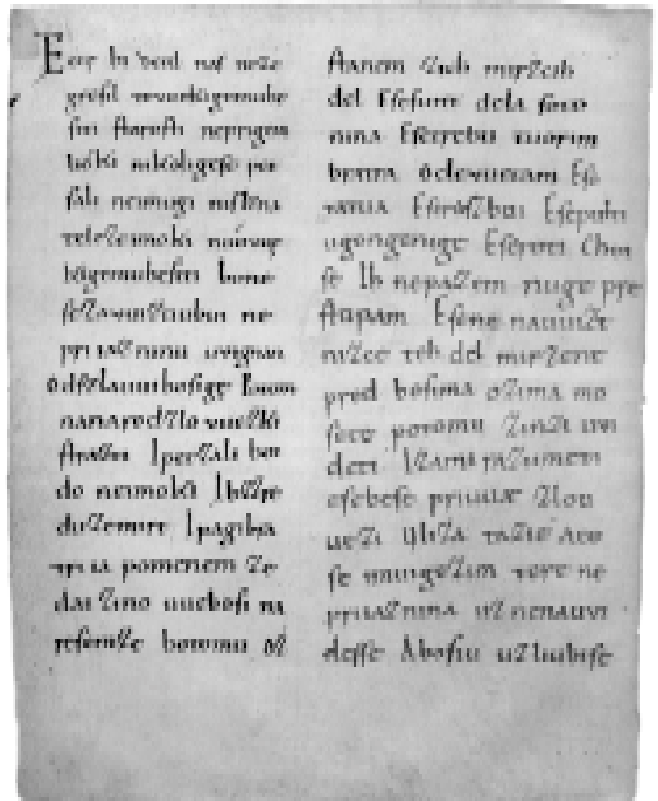 Ecce bi detd naſ neze
greſil tevuekigemube
ſiti ſtaroſti neprigem
lióki nikoligeſe pet
ſali neimugi niſlzna
telezeimoki nuúvue
kigemubeſiti bone
ſezavuiztiubui ne
priiazninu uvignan
Od ſzlauuiboſige Potom
nanarodzlovuezki
ſtrazti Ipetzali boi
do neimoki Ibzzre
duzemirt Ipagibra
triia pomenem ze
dai zino uueboſi na
reſemze botomu oz
ſtanem zich mirzcih
del Eſeſunt dela ſoto
nina Eſetrebu tuorim
bratra Oclevuetam Eſe
tatua Eſerazboi Eſepulti
ugongenige Eſeroti Choi
ſe Ih nepazem nuge pre
ſtopam Eſene nauuizt
nizce teh del mirzene
pred boſima oſima mo
ſete potomu zinzi uvi
deti Izami razumeti
eſebeſe priuuae zlou
uezi Uliza tazie aco
ſe imuigezim tere ne
priiaznina uznenauvi
deſſe Aboſiu uzliubiſe